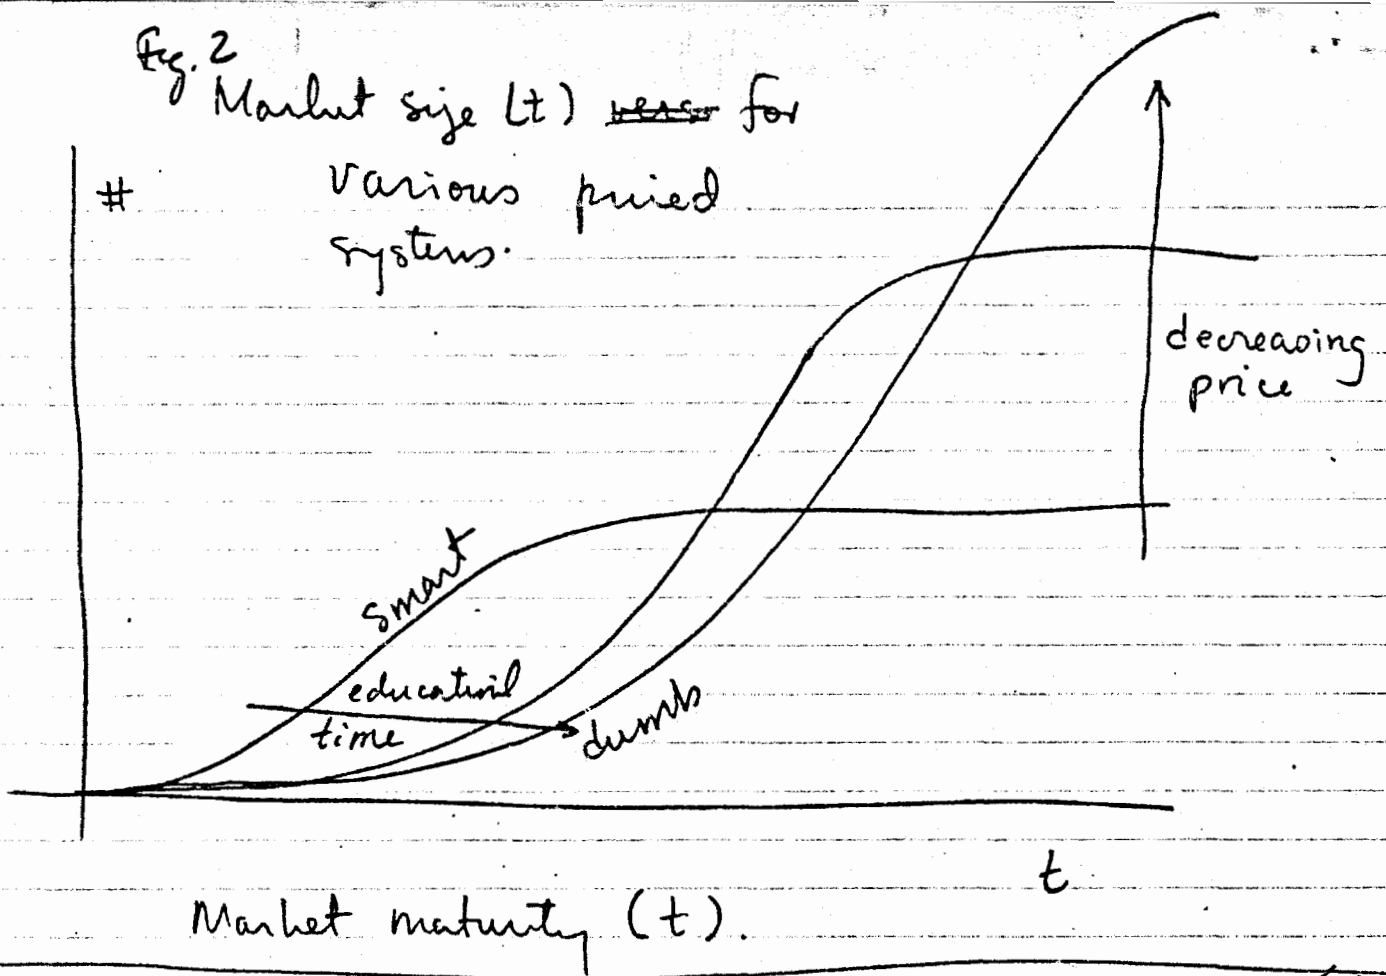 Fig. 2
Market size (t) for
#
various priced
systems.
decreasing
price
smart
educational
time
dumb
t
Market maturity (t).